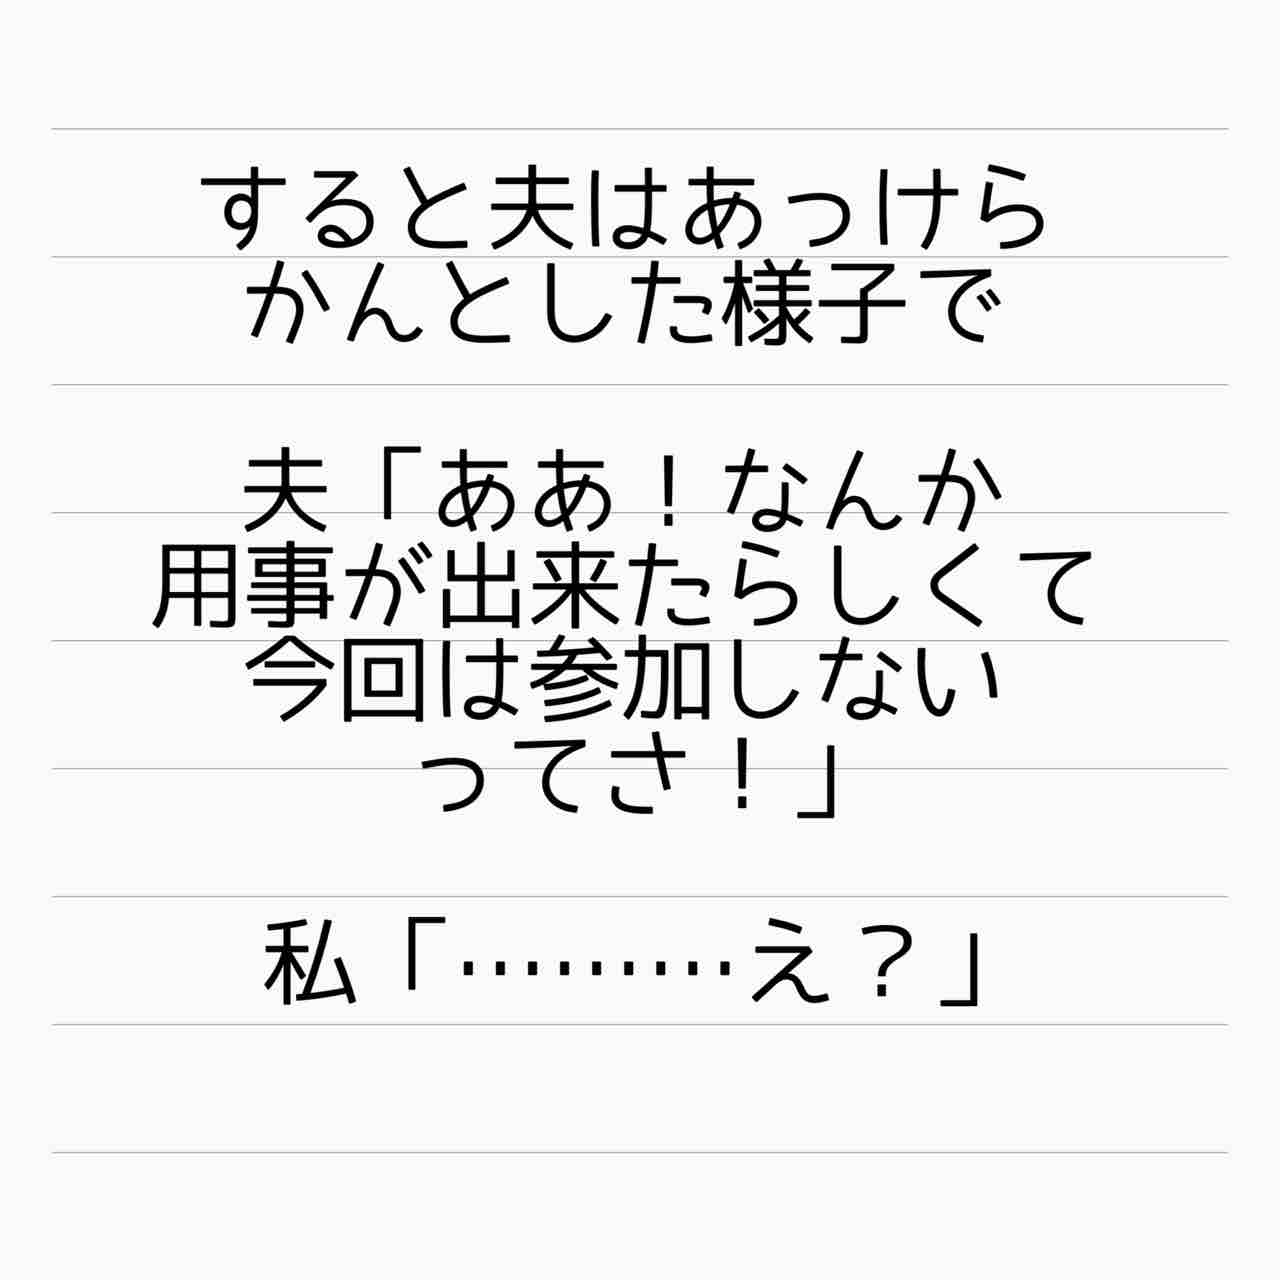 すると夫はあっけら
かんとした様子で
夫「ああ！なんか
用事が出来たらしくて
今回は参加しない
ってさ！」
私「………え？」